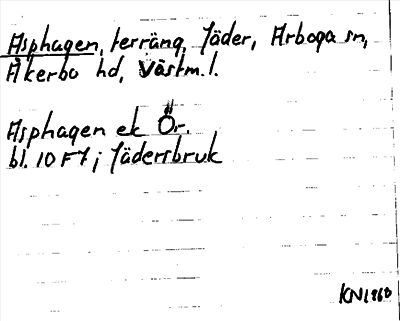 Asphagen, terräng, Jäder, Arboga sn,
Åkerbo hd, Västm. l.
Asphagen ek Ör.
bl. 10 F7 ; Jädersbruk
KN 1960